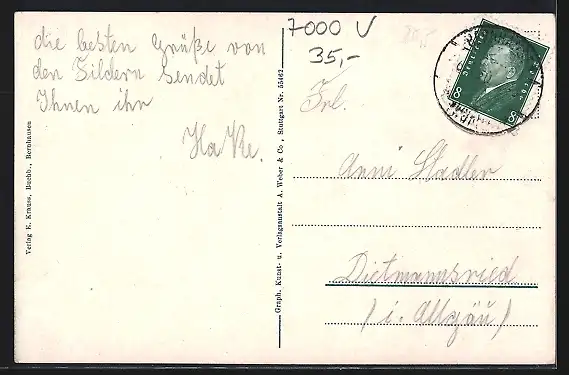 die besten Grüße von
den Fildern sendet
Ihnen ihr
HaKe.
7000 V
35,-
Frl.
Anni Stadler
Dietmannsried
(i. Allgäu)
Verlag K. Krauss, Buchb., Bernhausen
Graph. Kunst- u. Verlagsanstalt A. Weber & Co., Stuttgart Nr. 55462
8 8